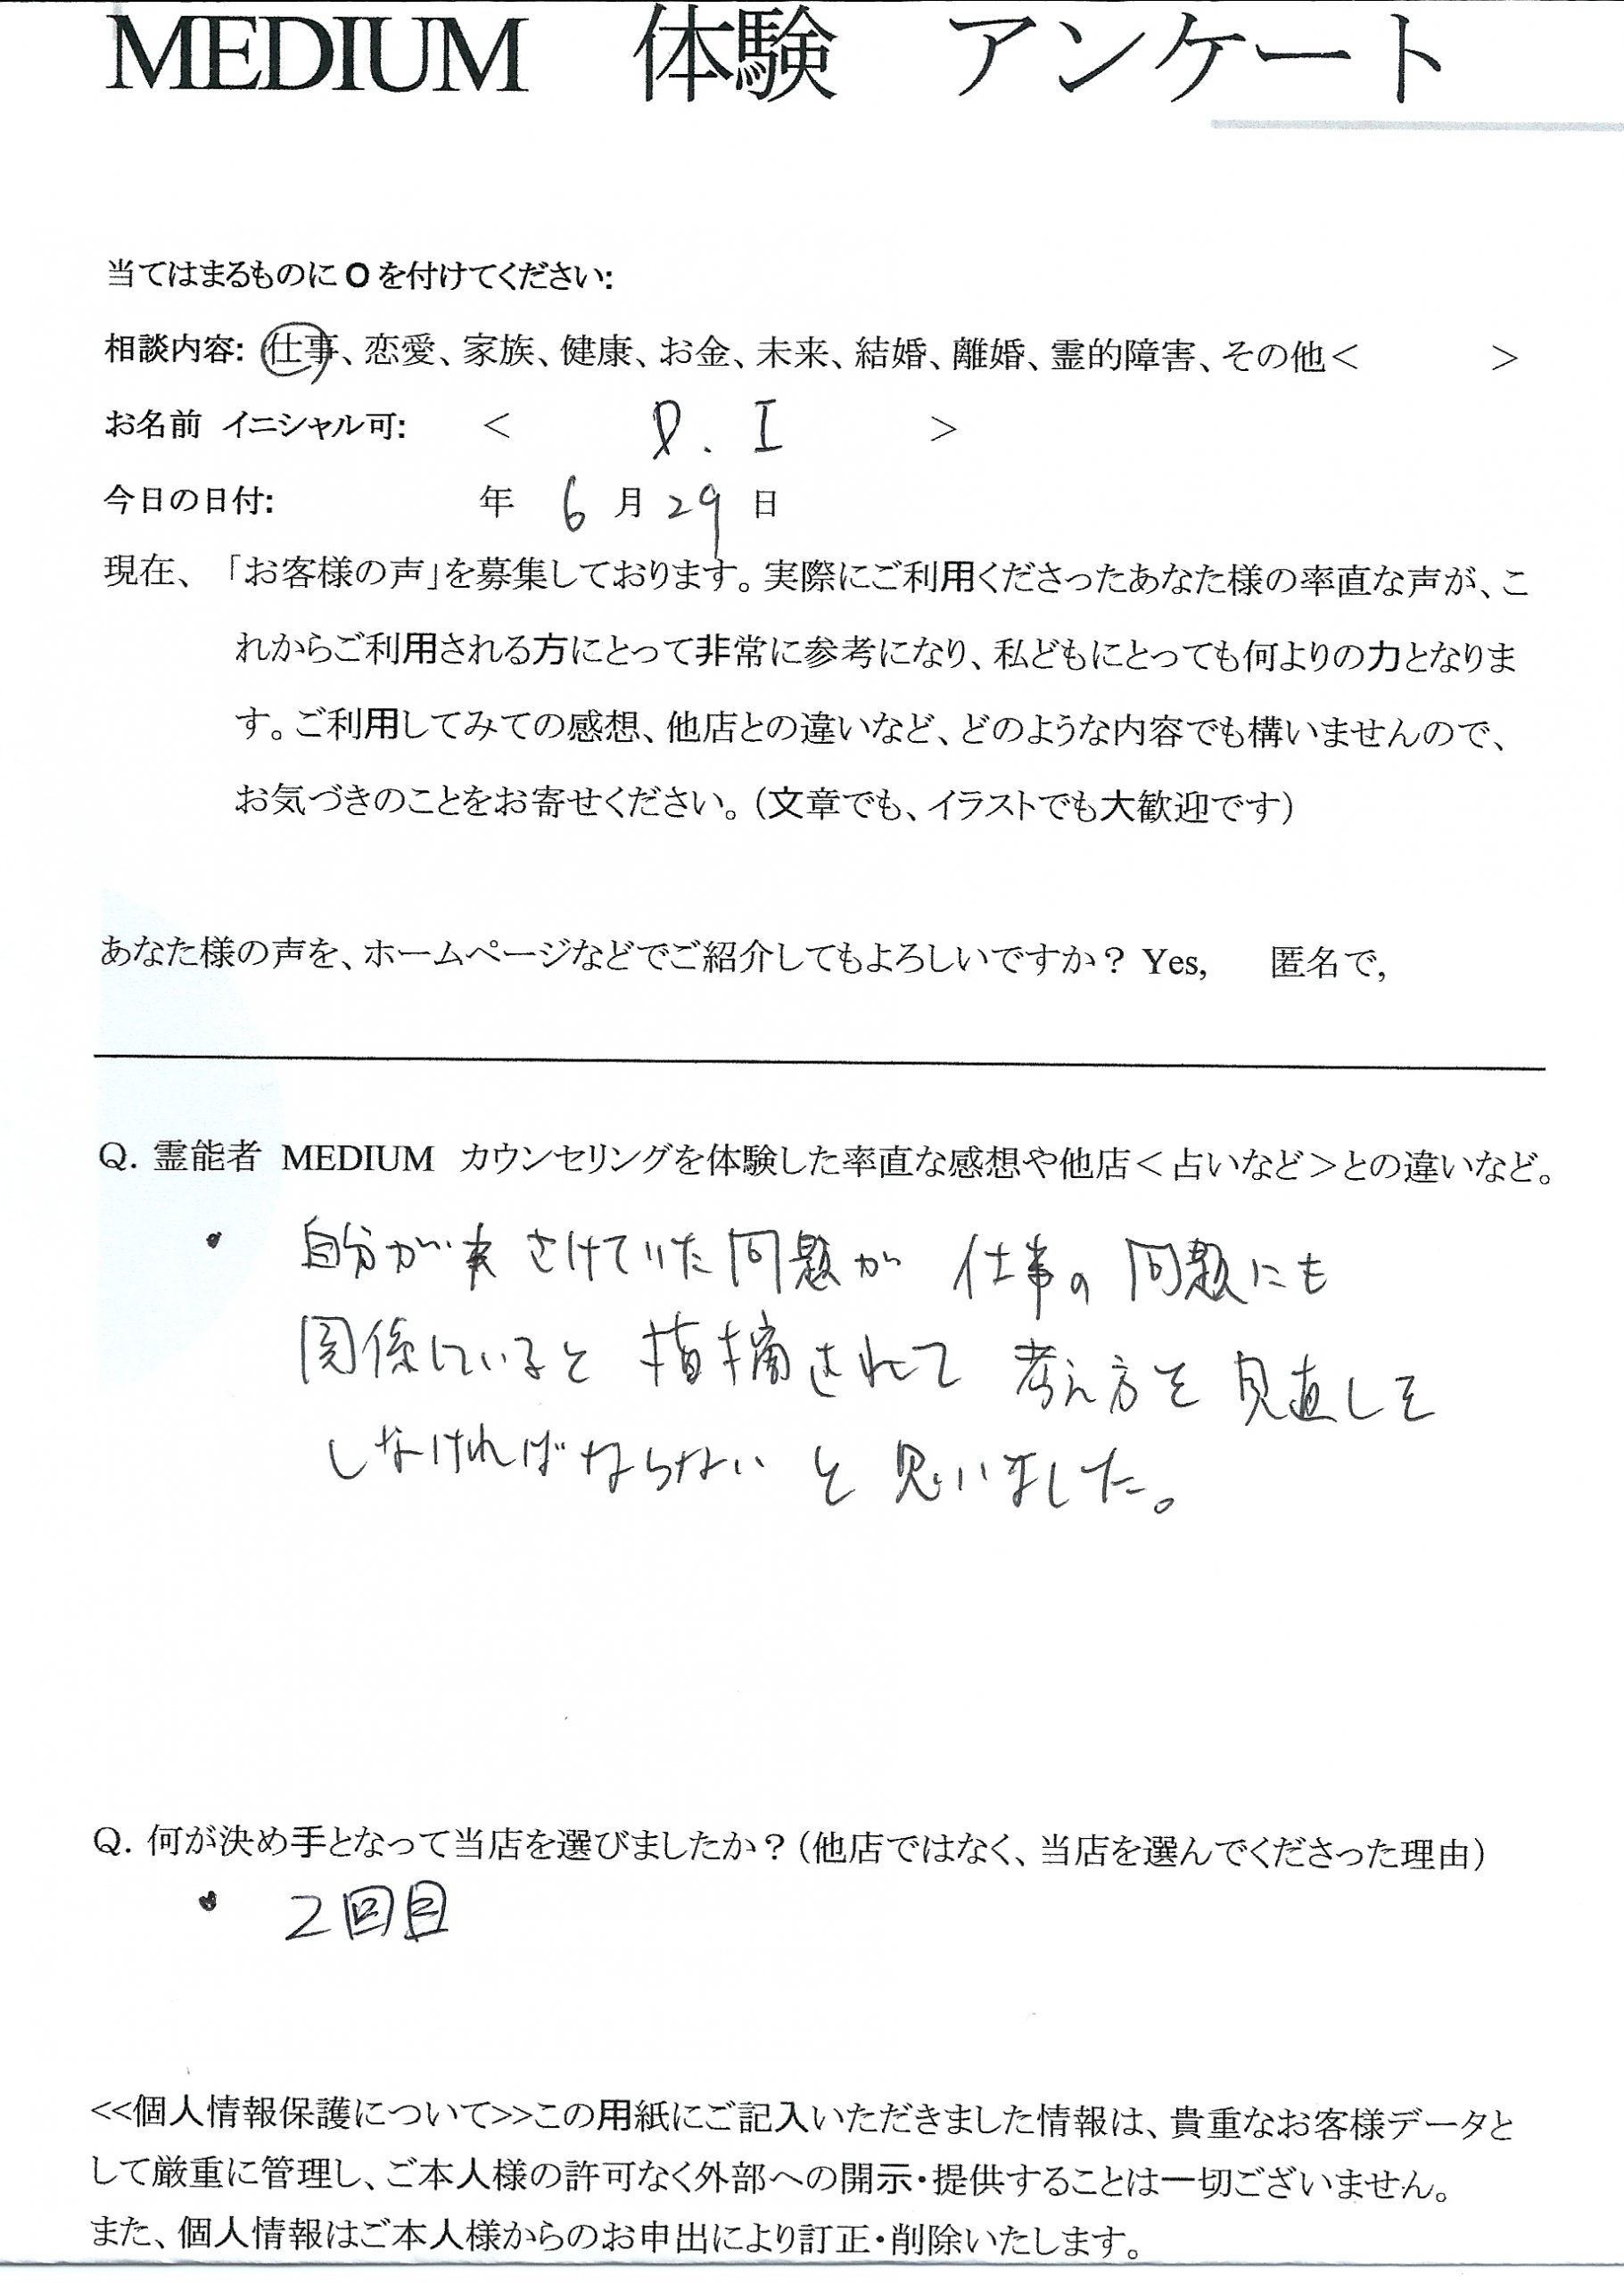 MEDIUM 体験 アンケート
当てはまるものに O を付けてください:
相談内容: 仕事、恋愛、家族、健康、お金、未来、結婚、離婚、霊的障害、その他＜ ＞
お名前 イニシャル可: ＜ D. I ＞
今日の日付: 年 6 月 29 日
現在、「お客様の声」を募集しております。実際にご利用くださったあなた様の率直な声が、こ
れからご利用される方にとって非常に参考になり、私どもにとっても何よりの力となりま
す。ご利用してみての感想、他店との違いなど、どのような内容でも構いませんので、
お気づきのことをお寄せください。（文章でも、イラストでも大歓迎です）
あなた様の声を、ホームページなどでご紹介してもよろしいですか？ Yes, 匿名で,
Q. 霊能者 MEDIUM カウンセリングを体験した率直な感想や他店＜占いなど＞との違いなど。
・ 自分が さけていた問題が 仕事の 問題にも
関係していると 指摘されて 考え方を 見直しを
しなければならない と 思いました。
Q. 何が決め手となって当店を選びましたか？（他店ではなく、当店を選んでくださった理由）
・ 2回目
<<個人情報保護について>>この用紙にご記入いただきました情報は、貴重なお客様データと
して厳重に管理し、ご本人様の許可なく外部への開示・提供することは一切ございません。
また、個人情報はご本人様からのお申出により訂正・削除いたします。